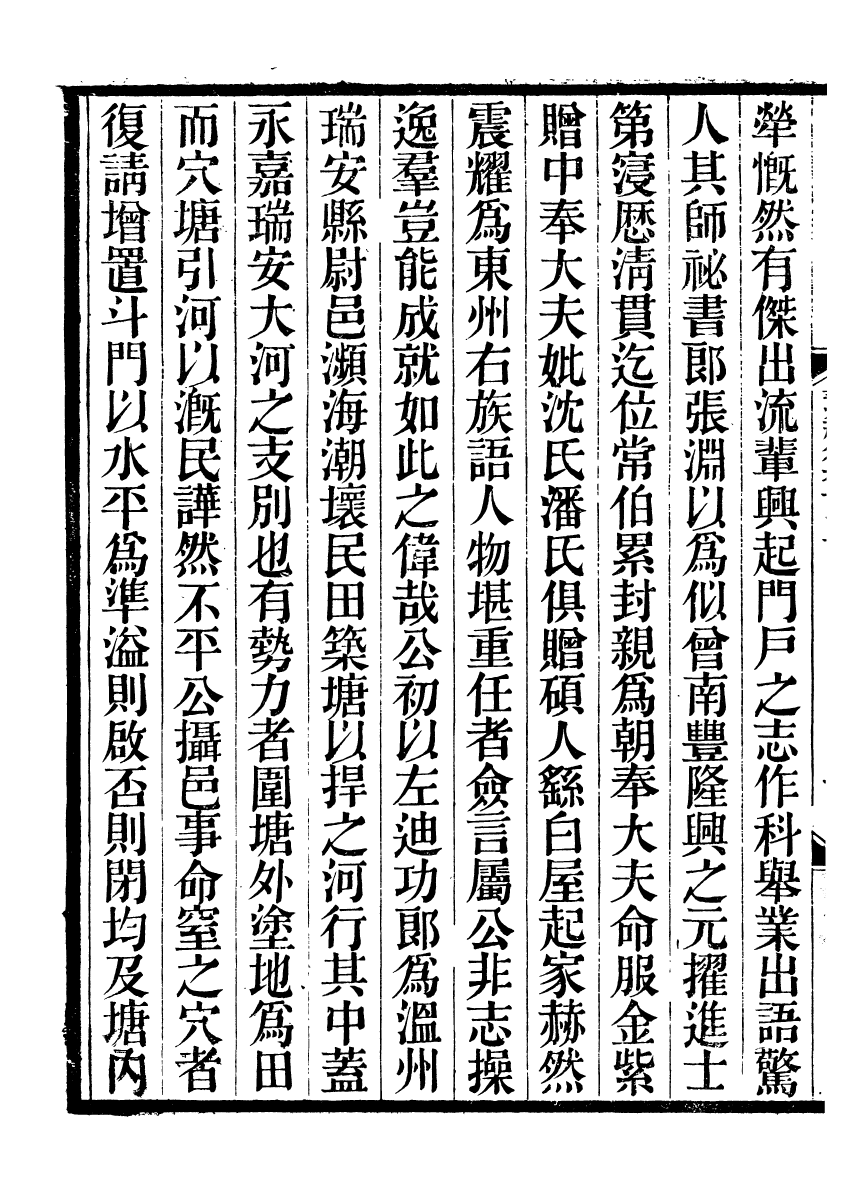 犖慨然有傑出流輩興起門戸之志作科舉業出語驚
人其師祕書郎張淵以為似曾南豐隆興之元擢進士
第寖歴淸貫迄位常伯累封親為朝奉大夫命服金紫
贈中奉大夫妣沈氏潘氏俱贈碩人繇白屋起家赫然
震耀為東州右族語人物堪重任者僉言屬公非志操
逸羣豈能成就如此之偉哉公初以左迪功郎為溫州
瑞安縣尉邑瀕海潮壞民田築塘以捍之河行其中蓋
永嘉瑞安大河之支別也有勢力者圍塘外塗地為田
而穴塘引河以漑民譁然不平公攝邑事命窒之穴者
復請增置斗門以水平為準溢則啟否則閉均及塘內